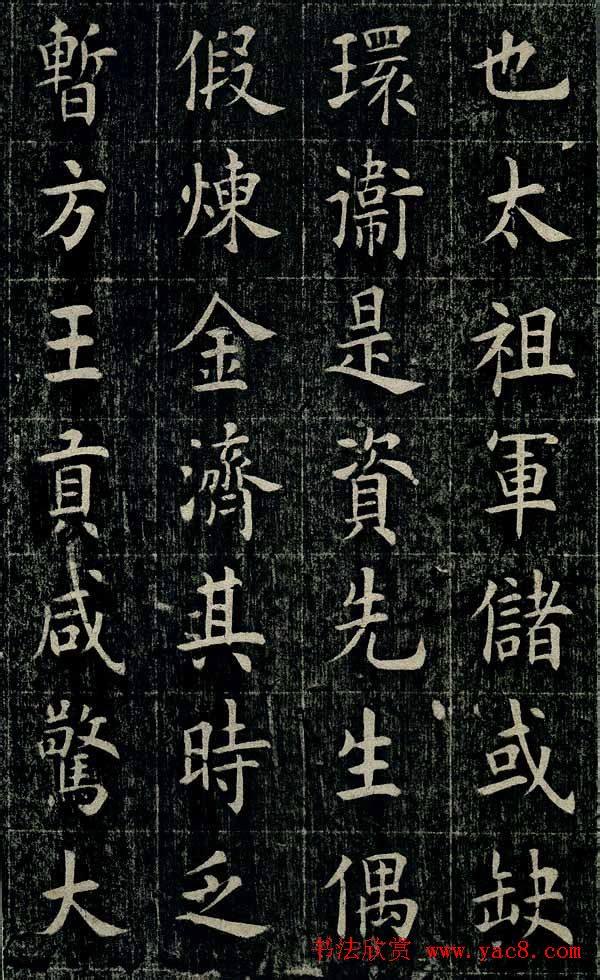 也太祖軍儲或缺
環衞是資先生偶
假煉金濟其時乏
暫方王貢咸驚大
书法欣赏 www.yac8.com